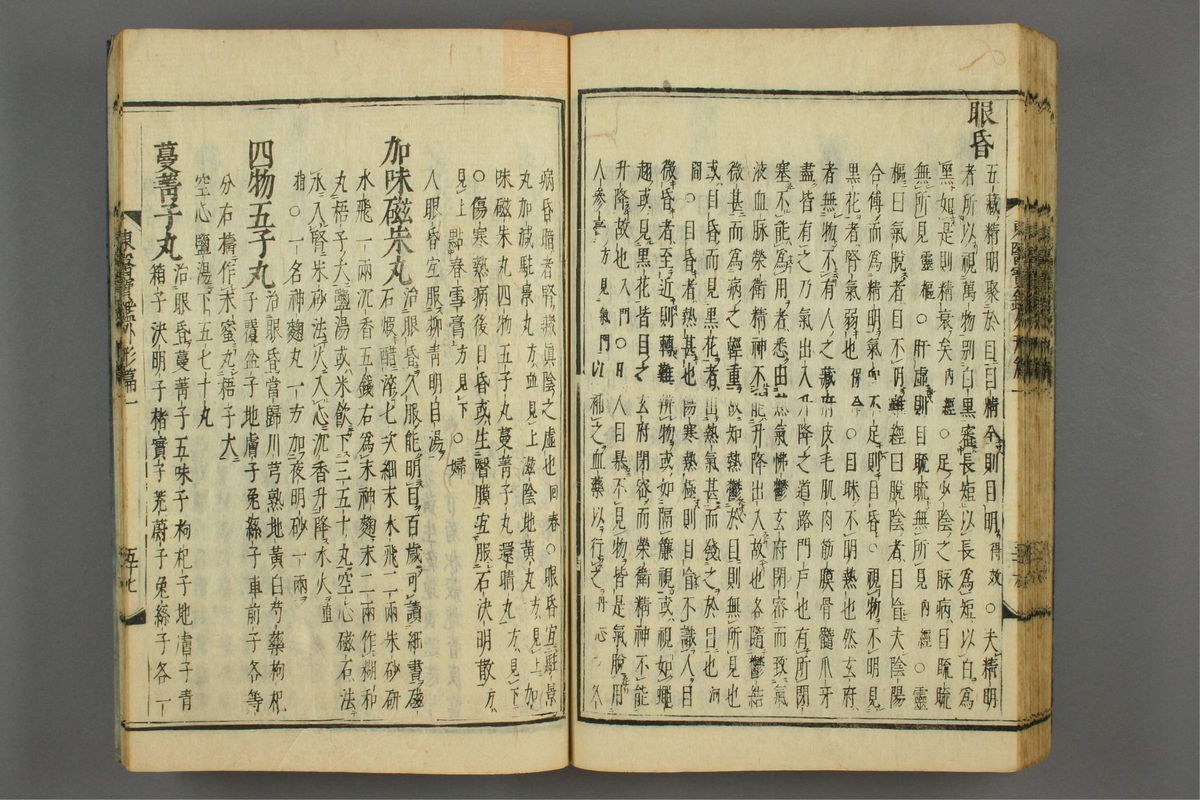 眼昏
五藏精明聚於目目精全則目明得效○夫精明
者所以視萬物別白黑審長短以長爲短以白爲
黑如是則精衰矣內經○足少陰之脉病目䀮䀮
無所見靈樞○肝虛則目䀮䀮無所見內經○靈
樞曰氣脫者目不明難經曰脫陰者目盲夫陰陽
合傅而爲精明氣不足則目昏○視物不明見
黑花者腎氣弱也保命○目昧不明熱也然玄府
者無物不有人之藏府皮毛肌肉筋膜骨髓爪牙
盡皆有之乃氣出入升降之道路門戶也有所閉
塞不能爲用者悉由熱氣怫鬱玄府閉密而致氣
液血脉榮衛精神不能升降出入故也各隨鬱結
微甚而爲病之輕重故知熱鬱於目則無所見也
或目昏而見黑花者由熱氣甚而發之於目也河
間○目昏者熱甚也傷寒熱極則目盲不識人目
微昏者至近則轉難辨物或如隔簾視或視如蠅
翅或見黑花皆目之玄府閉密而榮衛精神不能
升降故也入門○凡人目暴不見物皆是氣脫用
人參膏方見氣門以補之血藥以行之丹心○久
病昏暗者腎藏眞陰之虛也回春○眼昏宜駐景
丸加減駐景丸方血見上滋陰地黃丸方見上加
味磁朱丸四物五子丸蔓菁子丸還睛丸方見下
○傷寒熱病後目昏或生瞖膜宜服石決明散方
見上點春雪膏方見下○婦
人眼昏宜服抑靑明目湯
加味磁朱丸
治眼昏久服能明目百歲可讀細書磁
石煆醋淬七次細末水飛二兩朱砂硏
水飛一兩沉香五錢右爲末神麴末二兩作糊和
丸梧子大鹽湯或米飮下三五十丸空心磁石法
水入腎朱砂法火入心沉香升降水火直
指○一名神麴丸一方加夜明砂一兩
四物五子丸
治眼昏當歸川芎熟地黃白芍藥枸杞
子覆盆子地膚子兔絲子車前子各等
分右擣作末蜜丸梧子大
空心鹽湯下五七十丸
蔓菁子丸
治眼昏蔓菁子五味子枸杞子地膚子靑
箱子決明子楮實子茺蔚子兔絲子各一
東醫寶鑑外形篇一
五十七